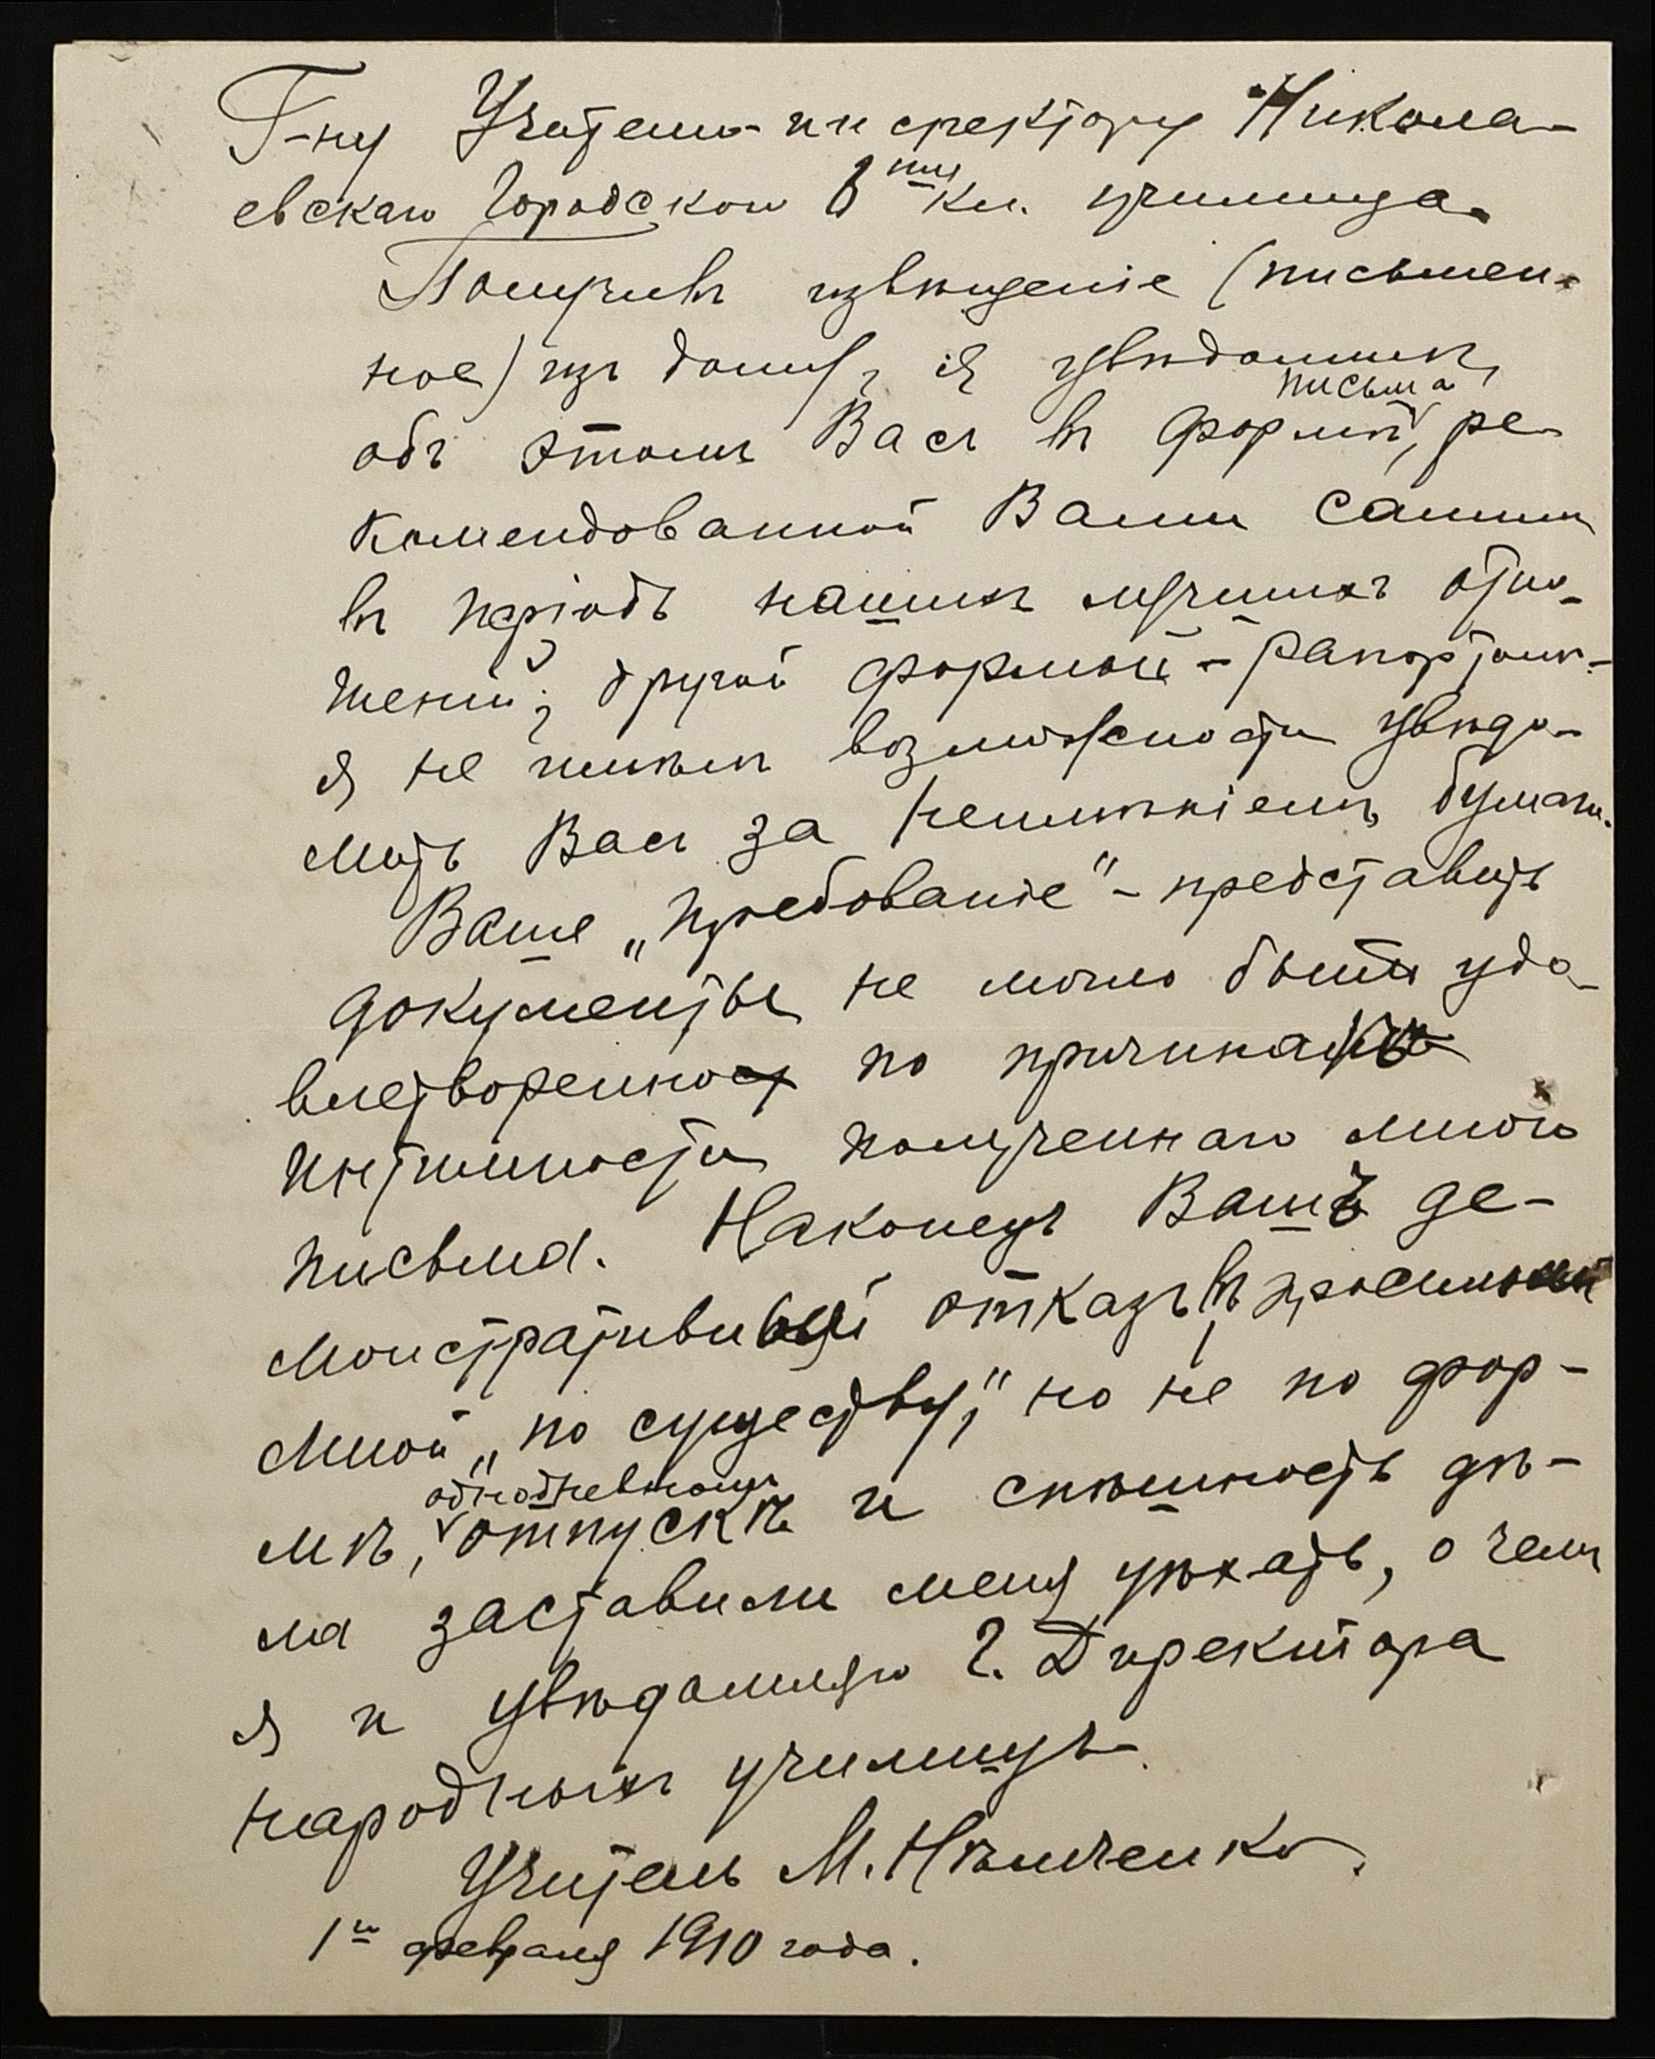 Г-ну Учителю-инспектору Никола-
евскаго Городского 6ти кл. училища.
Получивъ извѣщеніе (письмен-
ное) изъ дому, я увѣдомилъ
объ этомъ Васъ въ формѣ письма, ре-
комендованной Вами самимъ
въ періодъ нашихъ лучшихъ отно-
шеній; другой формой - рапортомъ -
я не имѣлъ возможности увѣдо-
мить Васъ за неимѣніемъ бумаги.
Ваше „требованіе" - представить
документы не могло быть удо-
влетворено по причинѣ
интимности полученнаго мною
письма. Наконецъ Вашъ де-
монстративный отказъ въ просимомъ
мной „по существу", но не по фор-
мѣ, однодневномъ отпускѣ и спѣшность дѣ-
ла заставили меня уѣхать, о чемъ
я и увѣдомляю Г. Директора
народныхъ училищъ.
Учитель М. Нѣмченко.
1го февраля 1910 года.